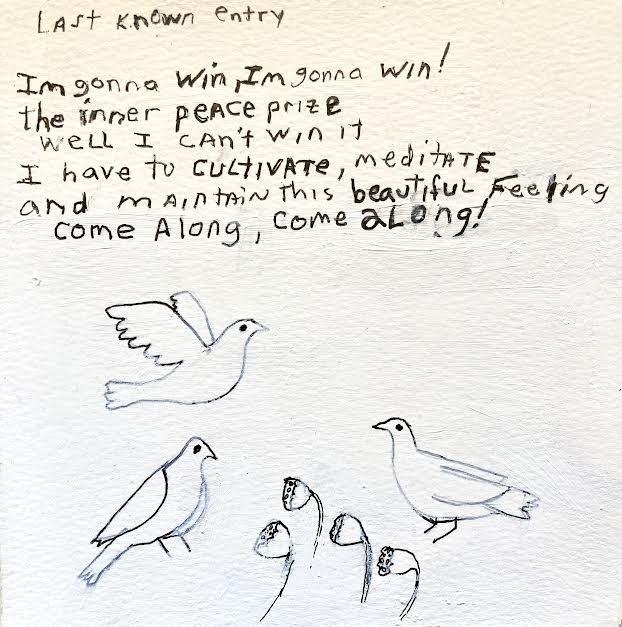 Last known entry
Im gonna win, Im gonna win!
the inner peace prize
well I can't win it
I have to CULTIVATE, meditATE
and mAINTAIN this beautiful Feeling
Come Along, Come aLong!